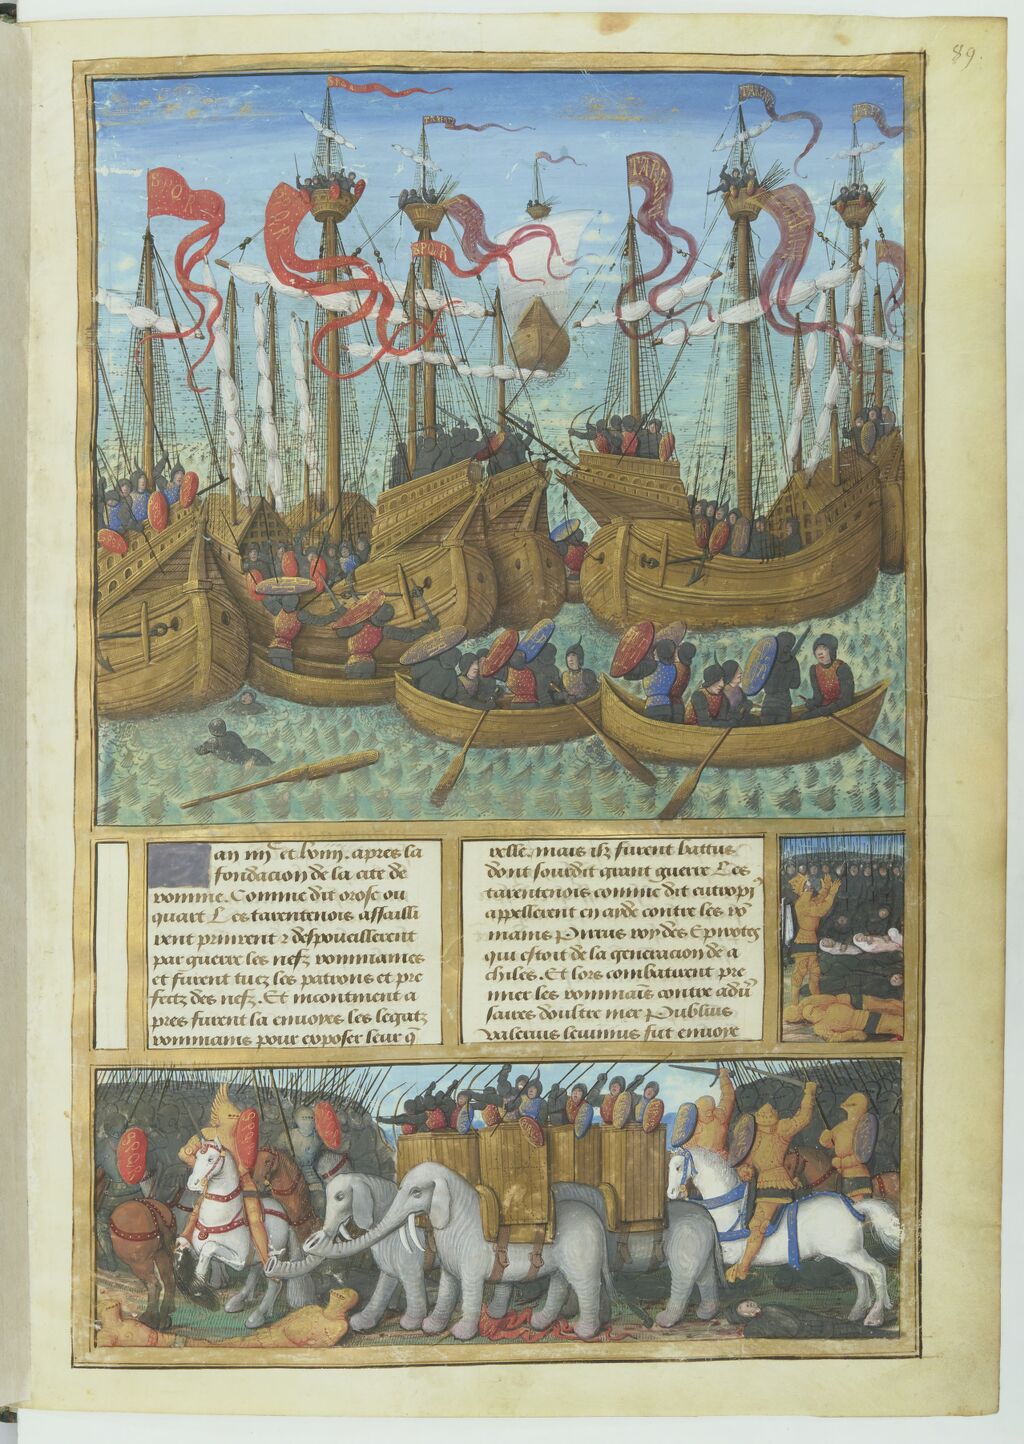 89.
SPQR
TARAN
TARAN
SPQR
SPQR
SPQR
TARAN
an iiii et lxiiii. apres la
fondacion de la cite de
romme. Comme dit orose ou
quart Les tarentenois assailli
rent prinrent ⁊ despouillerent
par guerre les nefz rommaines
et furent tuez les patrons et pre
fectz des nefz. Et incontinent a
pres furent la enuoyes les legatz
rommains pour exposer leur q̃
relle. mais ilz furent battus
dont sourdit grant guerre Les
tarentenois comme dit eutropi9
appellerent en ayde contre les ro
mains Pirrus roy des Epirotes
qui estoit de la generacion de a
chiles. Et lors combatirent pre
mier les rommains contre adũ
saires doultre mer Publius
Valerius leuinius fut enuoye
SPQR
SPQR